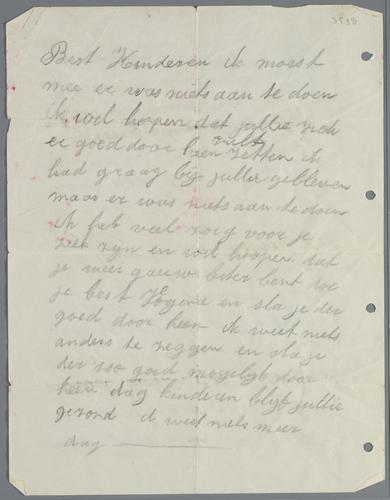 3595
Best Kinderen ik moest
mee er was niets aan te doen
ik wil hopen dat jullie zich
er goed door heen zult zetten ik
had graag bij jullie gebleven
maar er was niets aan te doen
ik heb veel zorg voor je
ziek zijn en wil hoopen dat
je weer gauw beter bent doe
je best en sla je der
goed door heen ik weet niets
anders te zeggen en sla je
der zoo goed mogelijk door
heen dag kinderen blijf jullie
gezond ik weet niets meer
dag